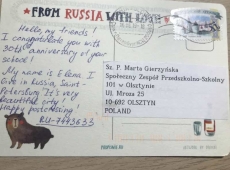 FROM RUSSIA WITH LOVE
Hello, my friends!
I congratulate you with
30th anniversary of your
school!
My name is Elena. I
live in Russia, Saint-
Petersburg. It's very
beautiful city!
Happy postcrossing!
RU-7493633
Sz. P. Marta Gierzyńska
Społeczny Zespół Przedszkolno-Szkolny
101 w Olsztynie
Ul. Mroza 25
10-692 OLSZTYN
POLAND